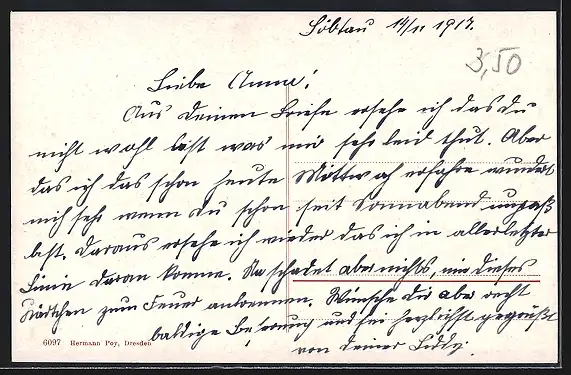 Löbtau 14/11 1917.
3,50
Liebe Anna!
Aus deinen Briefe ersehe ich das du
nicht wohl bist was mir sehr leid thut. Aber
das ich das schon heute Mittwoch erfahre wundert
mich sehr wenn du schon seit Sonnabend unpaß
bist. Daraus ersehe ich wieder das ich in allerletzter
Linie daran komme. Na schadet aber nichts, nur dieses
Kärtchen zum Feuer anbrennen. Wünsche dir aber recht
baldige Besserung und sei herzlichst gegrüßt
von deiner Liddy.
6097 Hermann Poy, Dresden